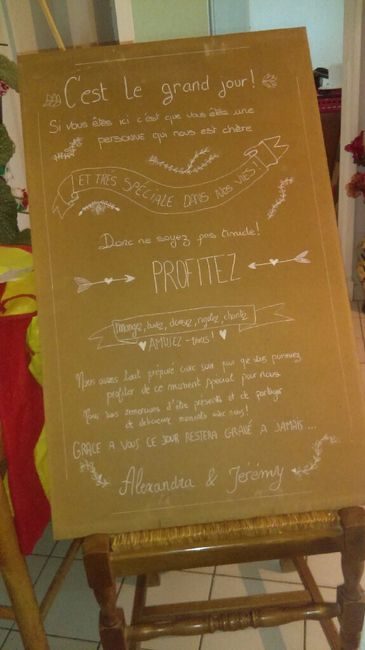 C'est le grand jour!
Si vous êtes ici c'est que vous êtes une
personne qui nous est chère
ET TRÈS SPÉCIALE DANS NOS VIES!
Donc ne soyez pas timide!
PROFITEZ
Mangez, buvez, dansez, rigolez, chantez
AMUSEZ-vous!
Nous avons tout préparé avec soin pour que vous puissiez
profiter de ce moment spécial pour nous
Nous vous remercions d'être présents et de partager
de délicieux moments avec nous!
GRÂCE A VOUS CE JOUR RESTERA GRAVÉ A JAMAIS...
Alexandra & Jérémy